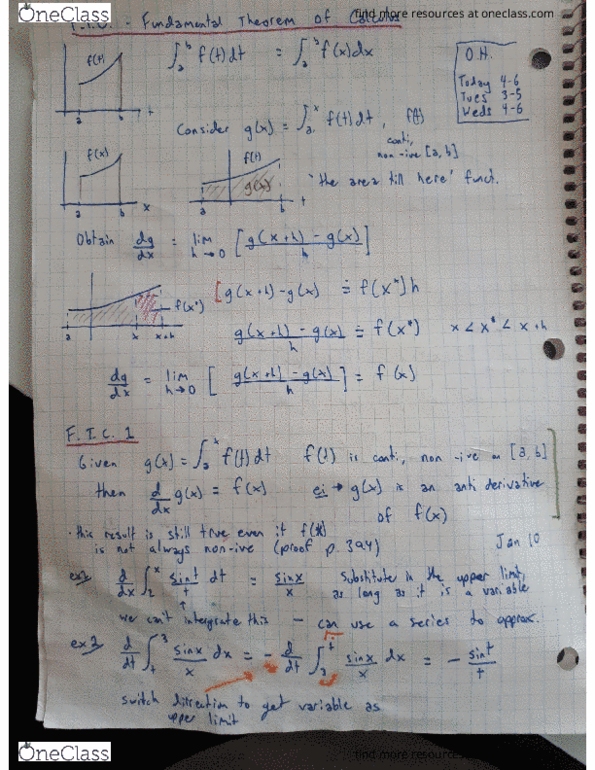 OneClass
find more resources at oneclass.com
F.T.C. - Fundamental Theorem of Calculus
f(t)
∫_a^b f(t)dt = ∫_a^b f(x)dx
a b t
O.H.
Today 4-6
Tues 3-5
Weds 4-6
Consider g(x) = ∫_a^x f(t)dt, f(t)
conti,
non-ive [a,b]
f(x)
a b x
f(t)
g(x)
a b t
"the area till here" funct.
Obtain dg/dx = lim h→0 [g(x+h) - g(x)/h]
f(x*)
a x x+h
[g(x+h) - g(x) ≐ f(x*)h
g(x+h) - g(x)/h ≐ f(x*) x < x* < x+h
dg/dx = lim h→0 [g(x+h) - g(x)/h] = f(x)
F.T.C. 1
Given g(x) = ∫_a^x f(t)dt f(t) is conti, non-ive on [a,b]
then d/dx g(x) = f(x) ei → g(x) is an anti derivative
of f(x)
• this result is still true even if f(x)
is not always non-ive (proof p. 394)
Jan 10
ex1 d/dx ∫_2^x sint/t dt = sinx/x Substitute in the upper limit,
as long as it is a variable
we can't intergrate this - can use a series to approx.
ex2 d/dt ∫_t^3 sinx/x dx = - d/dt ∫_3^t sinx/x dx = - sint/t
switch direction to get variable as
upper limit
OneClass
find more resources at oneclass.com